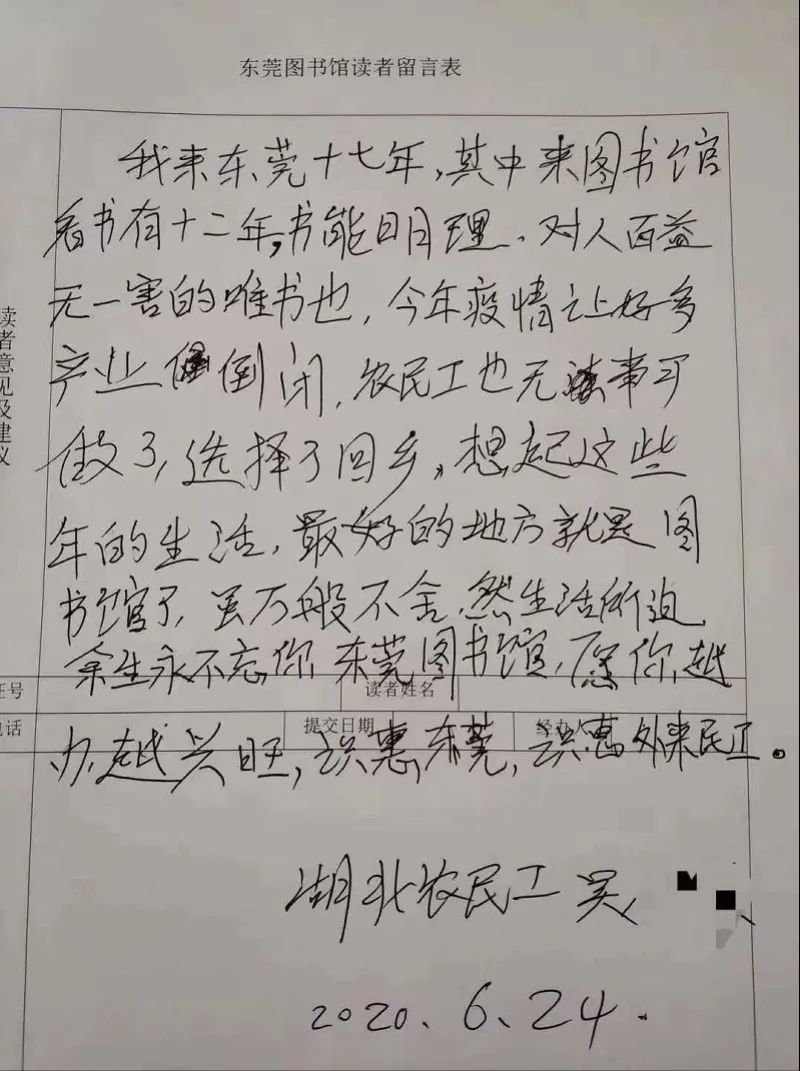 东莞图书馆读者留言表
我来东莞十七年,其中来图书馆
看书有十二年,书能明理、对人百益
无一害的唯书也,今年疫情让好多
产业倒闭,农民工也无事可
做了,选择了回乡,想起这些
年的生活,最好的地方就是图
书馆了,虽万般不舍,然生活所迫,
余生永不忘你,东莞图书馆,愿你越
办越兴旺,识惠东莞,识惠外来民工。
读者意见及建议
证号
读者姓名
电话
提交日期
经办人
湖北农民工 吴
2020、6、24.